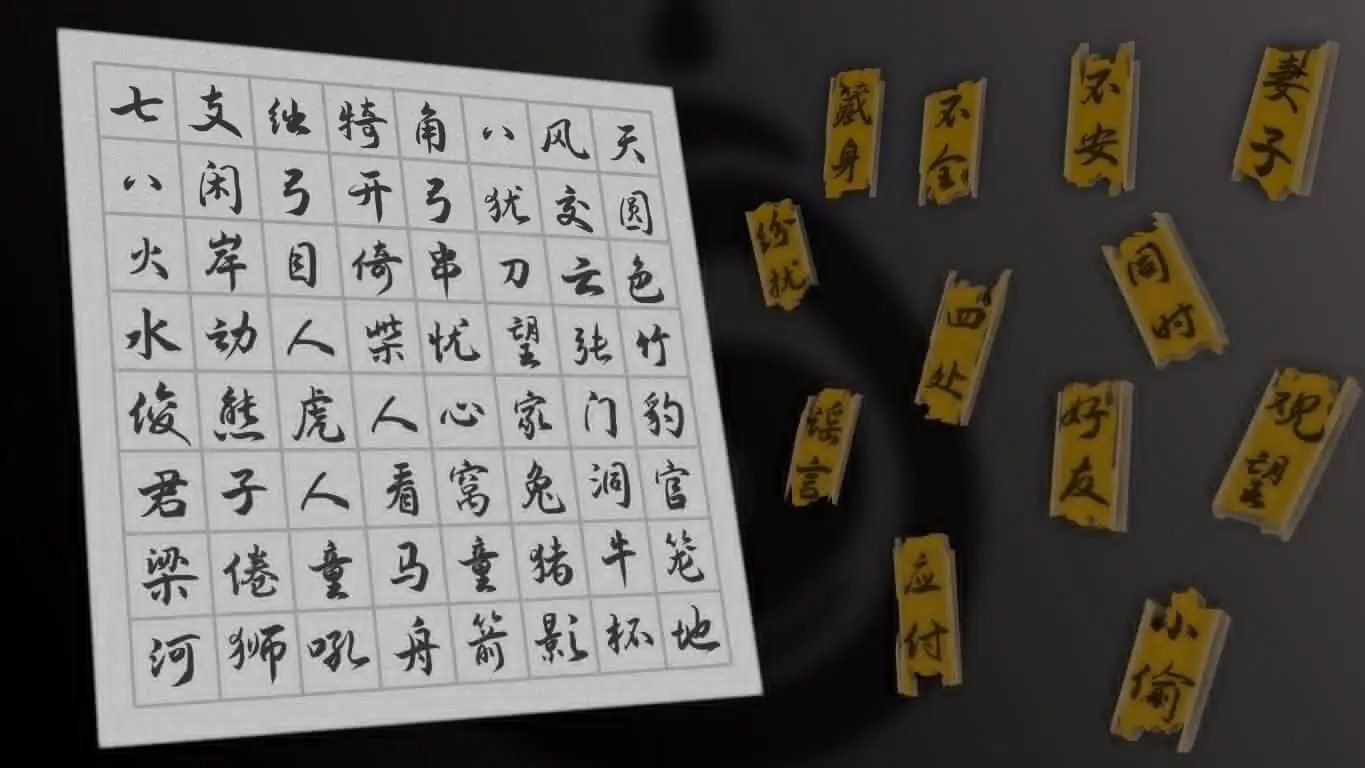 七支绌犄角八风天
八闲弓开弓犹交圆
火岸目倚串刀云色
水动人柴忧望张竹
俊熊虎人心家门豹
君子人看窝兔洞官
梁倦童马童猪牛笼
河狮吼舟箭影杯地
藏身
不全
不安
妻子
纷扰
四处
同时
谣言
好友
观望
应付
小偷